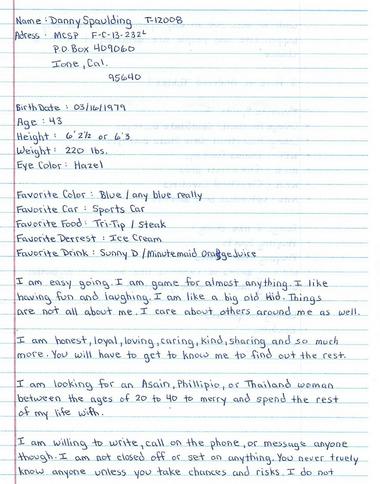 Name : Danny Spaulding T-12008
Adress : MCSP F-C-13-232L
P.O. Box 409060
Ione, Cal.
95640
BirthDate : 03/16/1979
Age : 43
Height : 6'2½ or 6'3
Weight : 220 lbs.
Eye Color : Hazel
Favorite Color : Blue / any blue really
Favorite Car : Sports Car
Favorite Food : Tri-Tip / Steak
Favorite Derrest : Ice Cream
Favorite Drink : Sunny D / Minutemaid Orange Juice
I am easy going. I am game for almost anything. I like
having fun and laughing. I am like a big old Kid. Things
are not all about me. I care about others around me as well.
I am honest, loyal, loving, caring, kind, sharing and so much
more. You will have to get to know me to find out the rest.
I am looking for an Asain, Phillipio, or Thailand woman
between the ages of 20 to 40 to merry and spend the rest
of my life with.
I am willing to write, call on the phone, or message anyone
though. I am not closed off or set on anything. You never truely
know anyone unless you take chances and risks. I do not